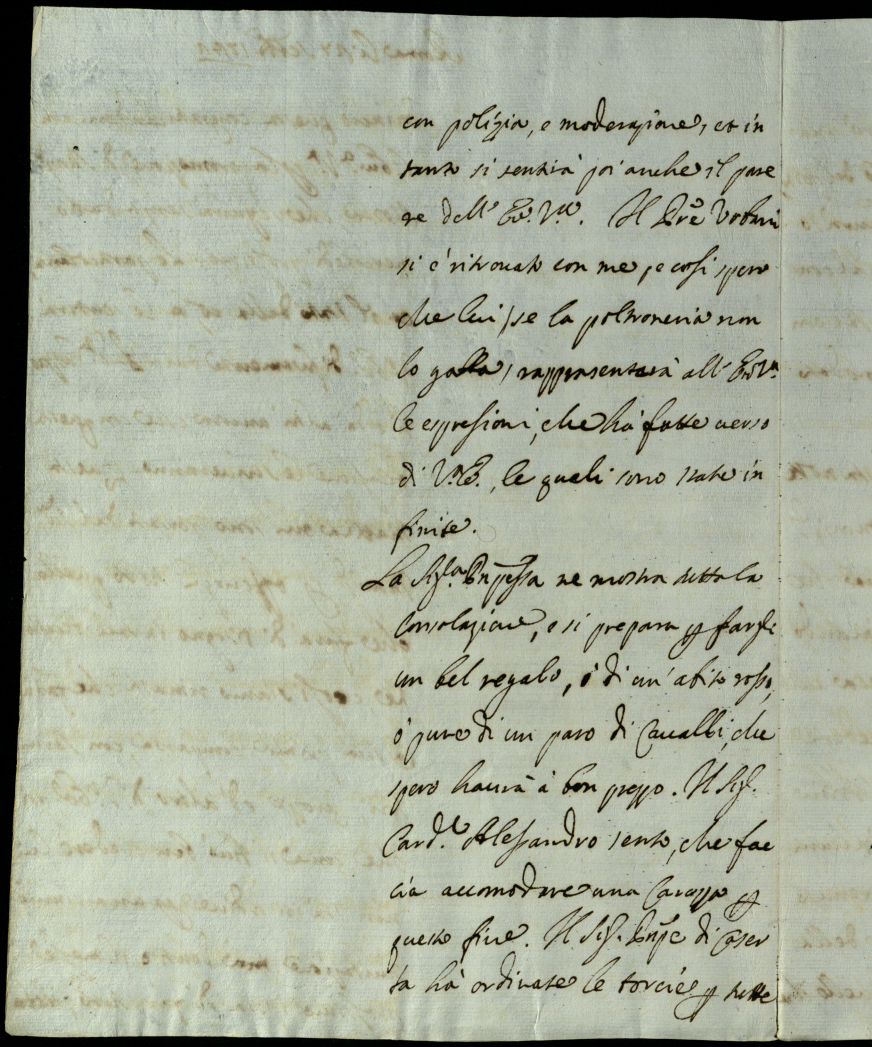 con polizia, e moderazione, et in
tanto si sentirà poi anche il pare
re dell' Em. V.ra. Il Prē Urbani
si è ritrovato con me, e cosi spero
che lui / se la poltroneria non
lo gabba / rappresenterà all' Em. V.ra
le espressioni, che hà fatte verso
di V.E., le quali sono state in
finite.
La Sig.ra Pñpessa ne mostra tutta la
Consolazione, e si prepara p farsi
un bel regalo, ò di un' abito rosso,
ò pure di un paro di Cavalli, che
spero haverà à bon prezzo. Il Sig.
Card.l Alessandro sento, che fac
cia accomodare una Carozza p
questo fine. Il Sig. Pñpe di Caser
ta hà ordinate le torcie p tutte